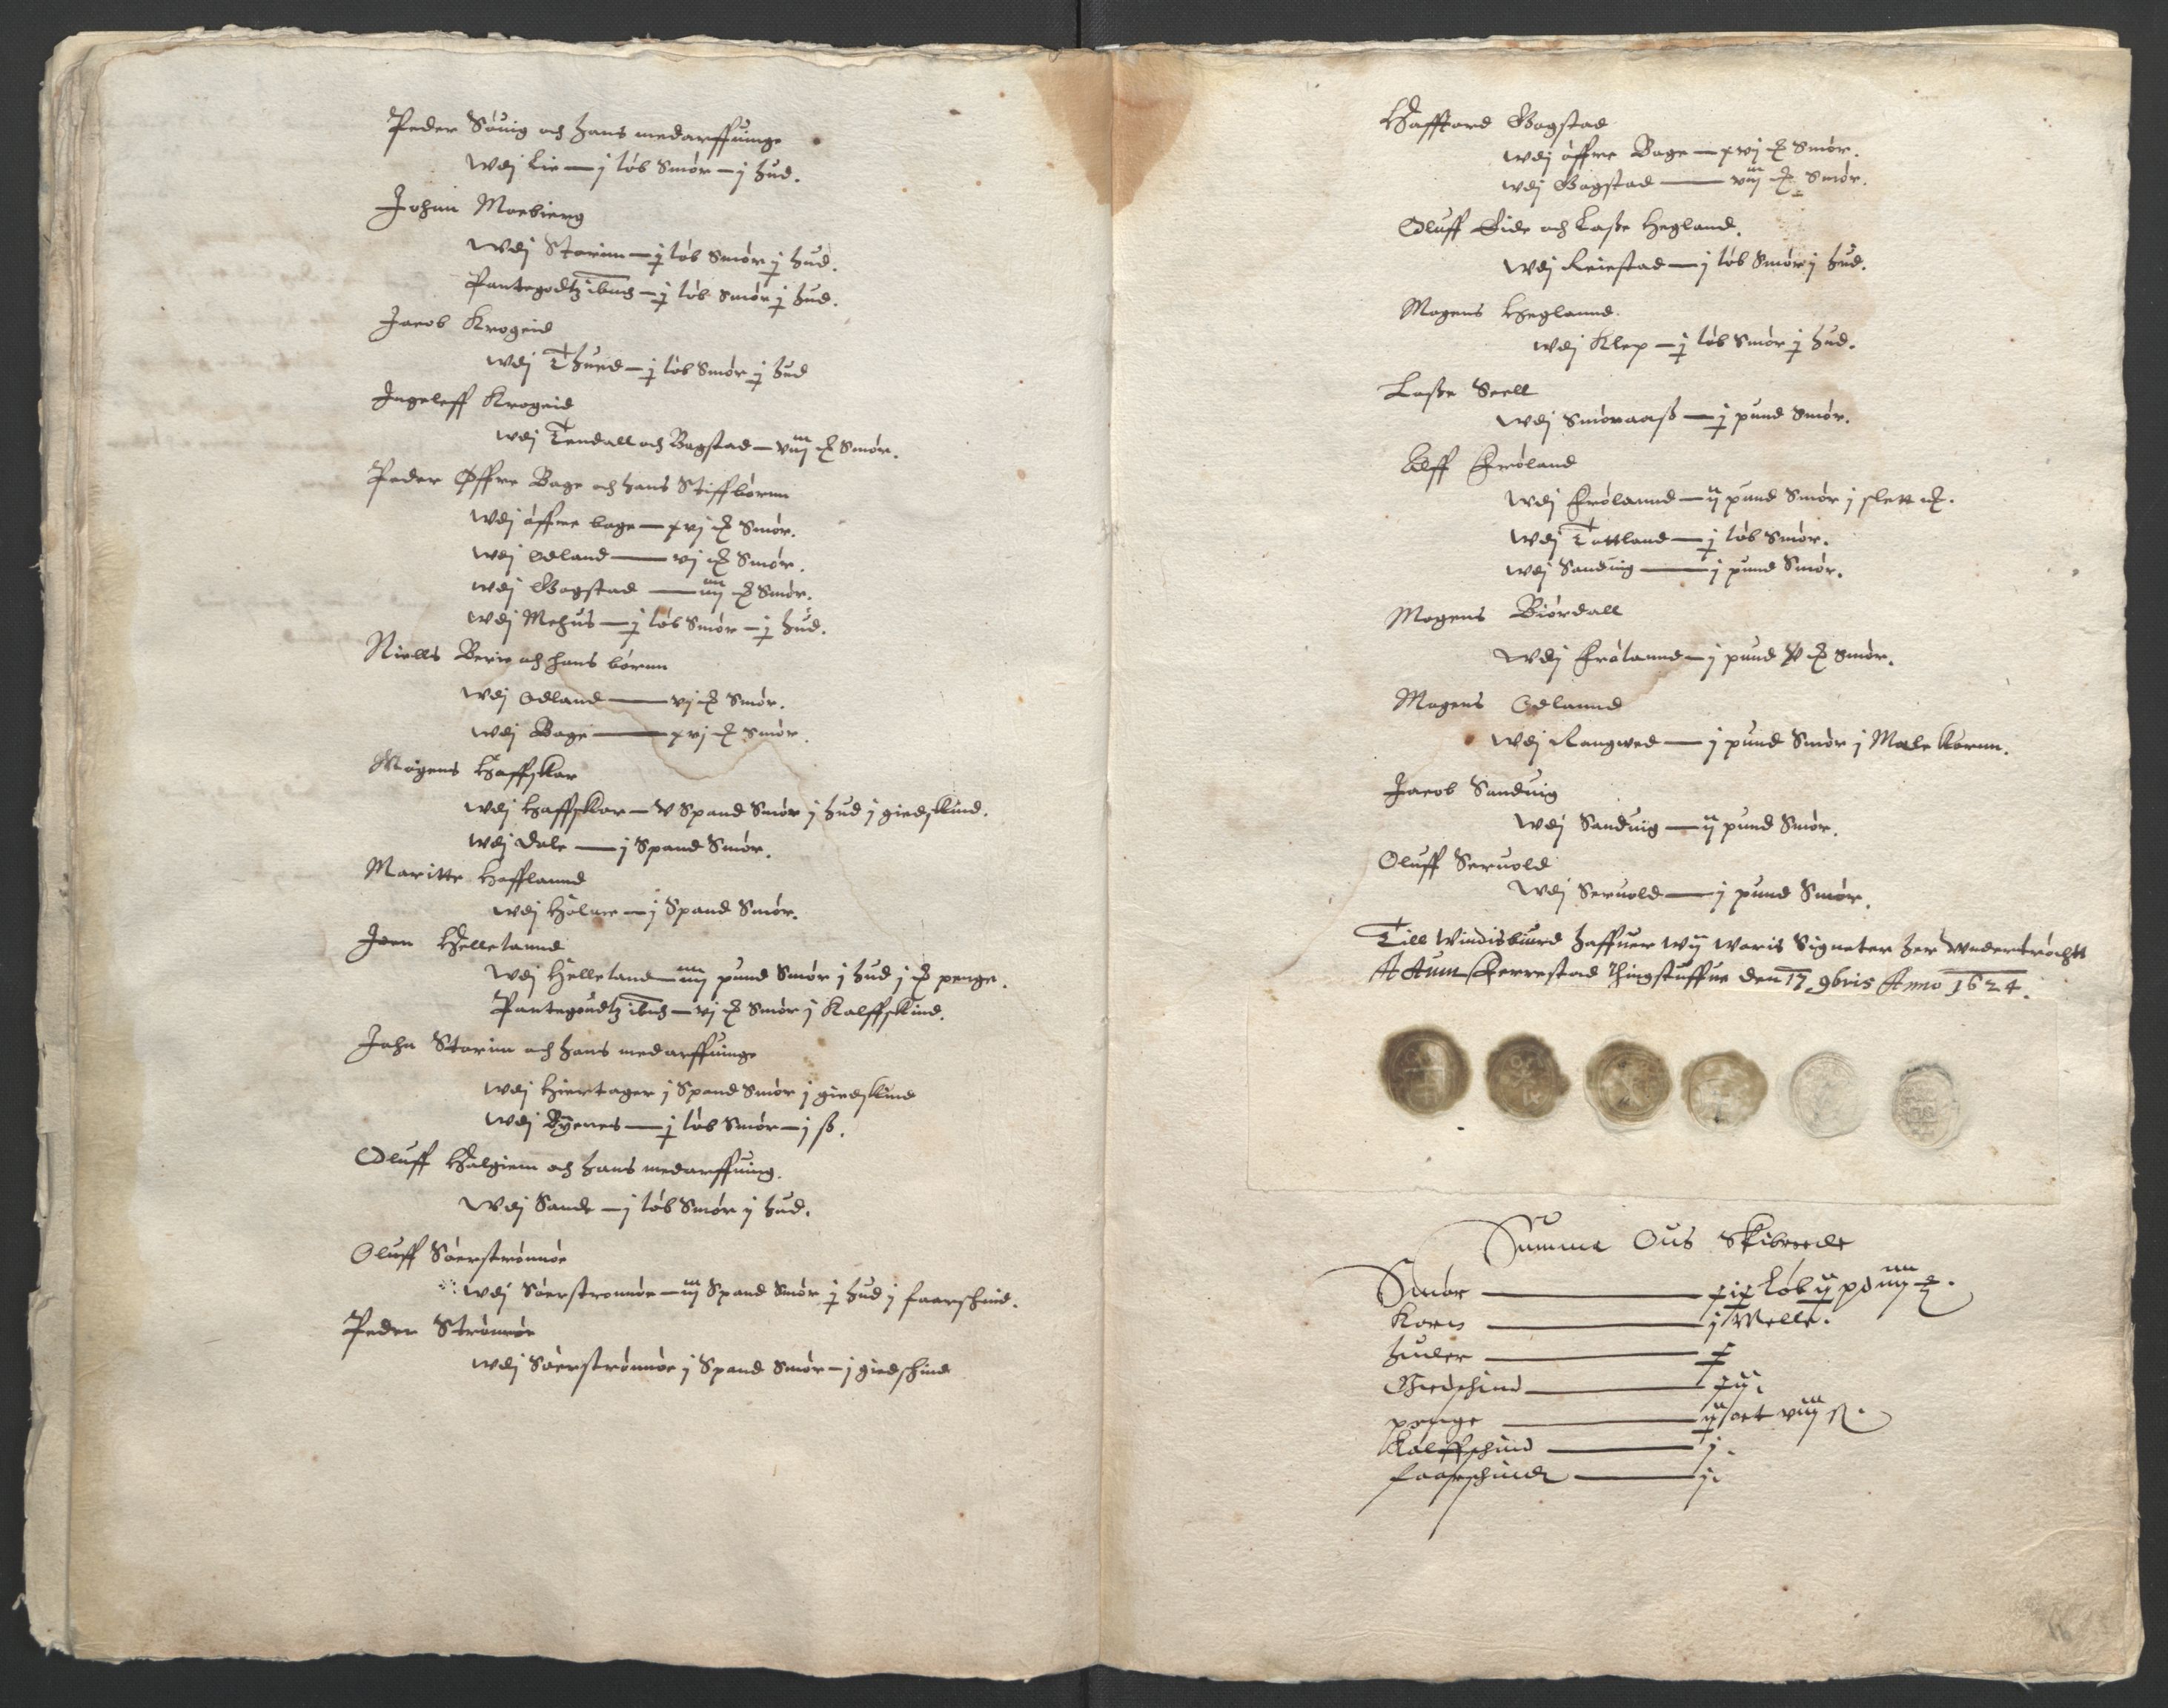 Peder Søuig och hans medarffuinge
Wdj Lie — j løb Smør — j hud.
Johan Moebierg
Wdj Storim — j løb Smør j hud.
Pantegodtz ibid — j løb Smør j hud.
Jacob Krogeid
Wdj Thued — j løb Smør j hud
Ingeleff Krogeid
Wdj Tendall och Bogstad — viij Smør.
Peder Øffre Bage och hans Stiffbørnn
Wdj øffre bage — xvj Smør.
Wdj Odland — vj Smør.
Wdj Bogstad — iiij Smør.
Wdj Mehus — j løb Smør — j hud.
Niells Berie och hans børnn
Wdj Odland — vj Smør.
Wdj Bage — xvj Smør.
Mogens Haffskar
Wdj Haffskar — v Spand Smør j hud j giedskind.
Wdj Dale — j Spand Smør.
Maritte Hofflannd
Wdj Holme — j Spand Smør.
Joen Hellelannd
Wdj Helleland — iiij pund Smør j hud j penge.
Pantegoudtz ibid — vj Smør j Kalffskind.
John Storim och hans medarffuinge
Wdj Hiertager j Spand Smør j giedskind
Wdj Byenes — j løb Smør — j ß.
Oluff Halgiem och hans medarffuing.
Wdj Sande — j løb Smør j hud.
Oluff Søerstrømøe
Wdj Søerstrømøe — iij Spand Smør j hud j faarschind.
Peder Strømøe
Wdj Søerstrømøe j Spand Smør — j giedschind
Hafftord Bogstad
Wdj øffre Bage — xvj Smør.
Wdj Bogstad — viij Smør.
Oluff Eide och Laße Hegland.
Wdj Reiestad — j løb Smør j hud.
Mogens Heglannd.
Wdj Klep — j løb Smør j hud.
Laße Seell
Wdj Smøraaß — j pund Smør.
Alff Frøland
Wdj Frølannd — ij pund Smør j slett
Wdj Tottland — j løb Smør.
Wdj Sanduig — j pund Smør.
Mogens Biørdall
Wdj Frølannd — j pund Smør.
Mogens Odlannd
Wdj Rongwed — j pund Smør j Male kornn.
Jacob Sanduig
Wdj Sanduig — ij pund Smør.
Oluff Seruold
Wdj Seruold — j pund Smør.
Till Windisbiurd haffuer wij woris Signeter her wndertrøchtt
Actum Kerrestad Thingstuffue den 17 9bris Anno 1624.
Summa Ous Skibrede
Smør — xix Løb ij pd iiij
Korn — j Melle.
huder — x
Giedschind — xij.
penge — ij ort viij ß.
Kalffschind — j.
faarschind — j.